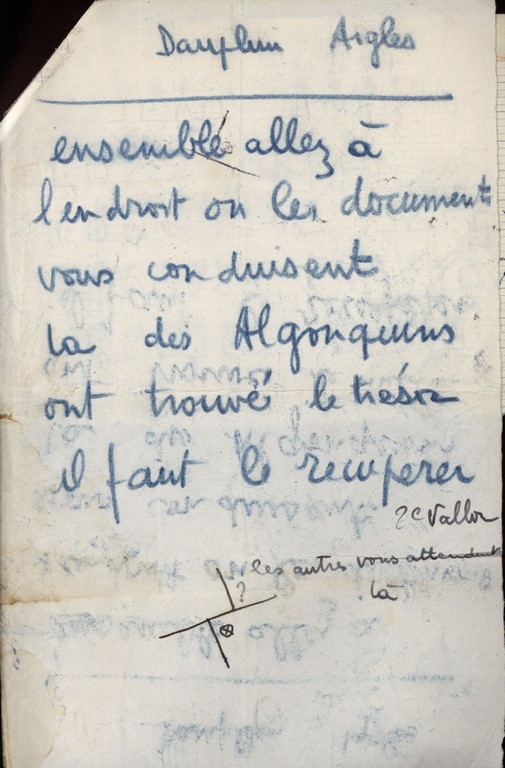 Dauphin Aigles
ensemble allez à
l'endroit ou les documents
vous conduisent
la des Algonquins
ont trouvé le trésor
il faut le recuperer
les autres vous attendent
là
?